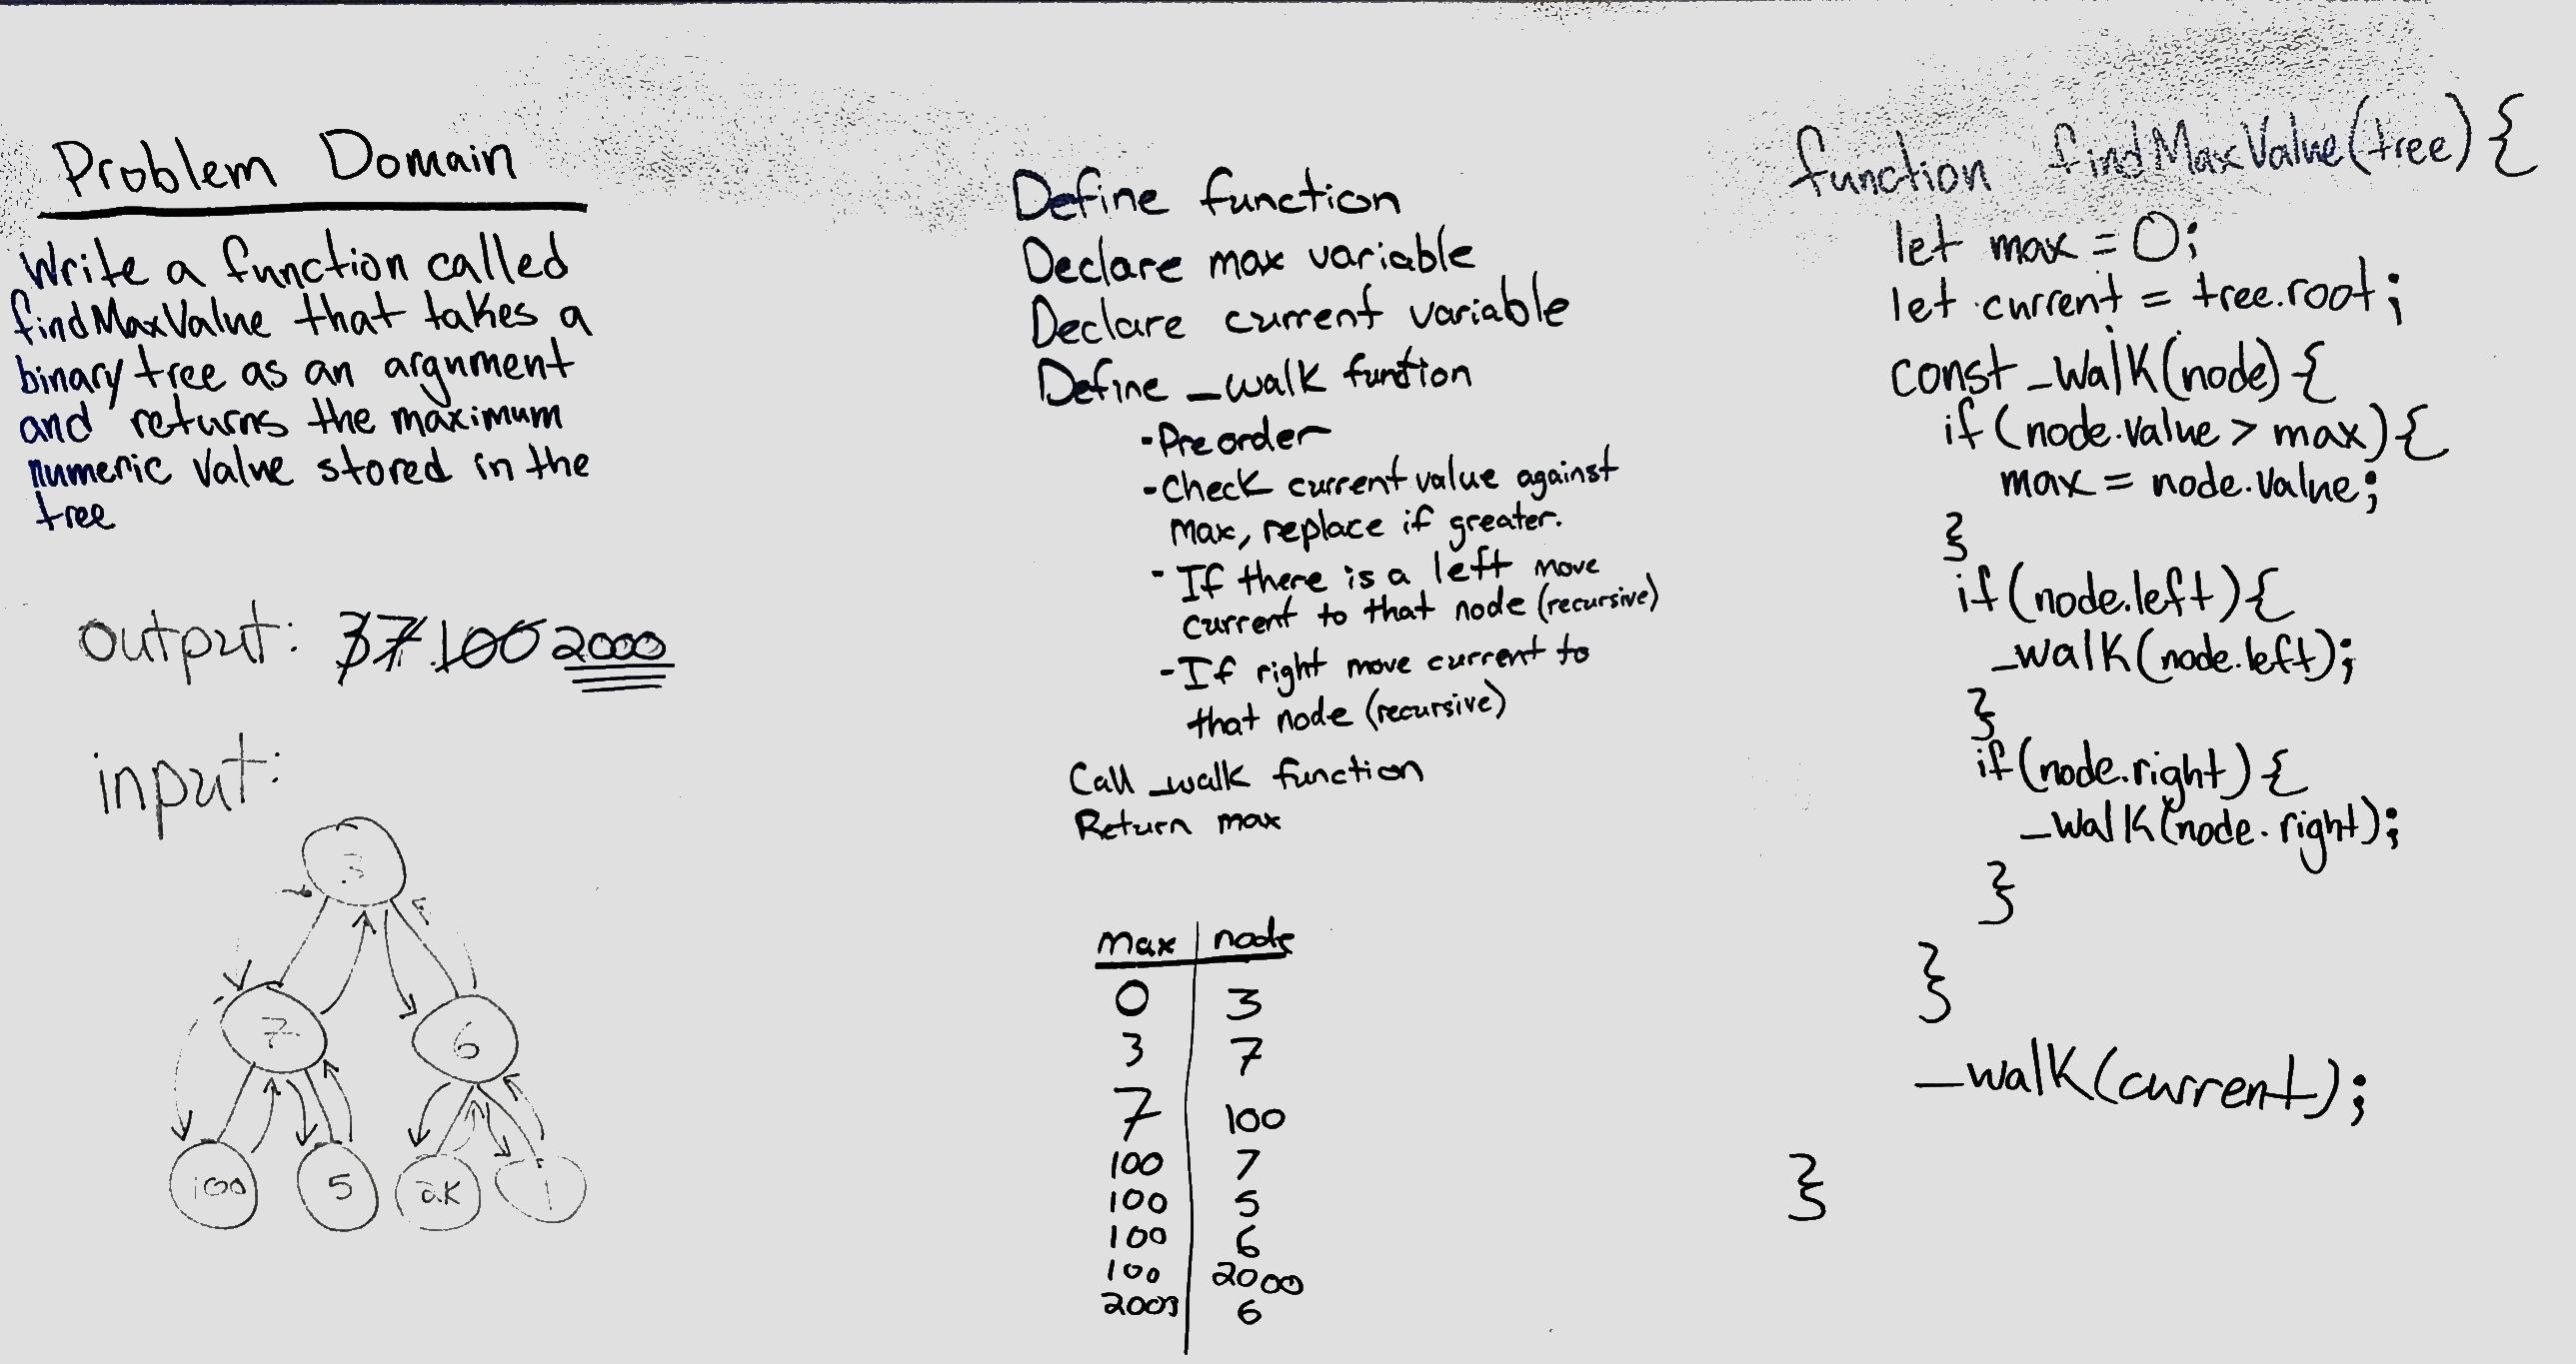 Problem Domain
Write a function called
findMaxValue that takes a
binary tree as an argument
and returns the maximum
numeric value stored in the
tree
output: 3 7 100 2000
input:
3
7 6
100 5 2K 1
Define function
Declare max variable
Declare current variable
Define _walk function
-Pre order
-Check current value against
max, replace if greater.
- If there is a left move
current to that node (recursive)
-If right move current to
that node (recursive)
Call _walk function
Return max
max node
0 3
3 7
7 100
100 7
100 5
100 6
100 2000
2000 6
function findMaxValue(tree){
let max = 0;
let current = tree.root;
const _walk(node){
if(node.value > max){
max = node.value;
}
if(node.left){
_walk(node.left);
}
if(node.right){
_walk(node.right);
}
}
_walk(current);
}